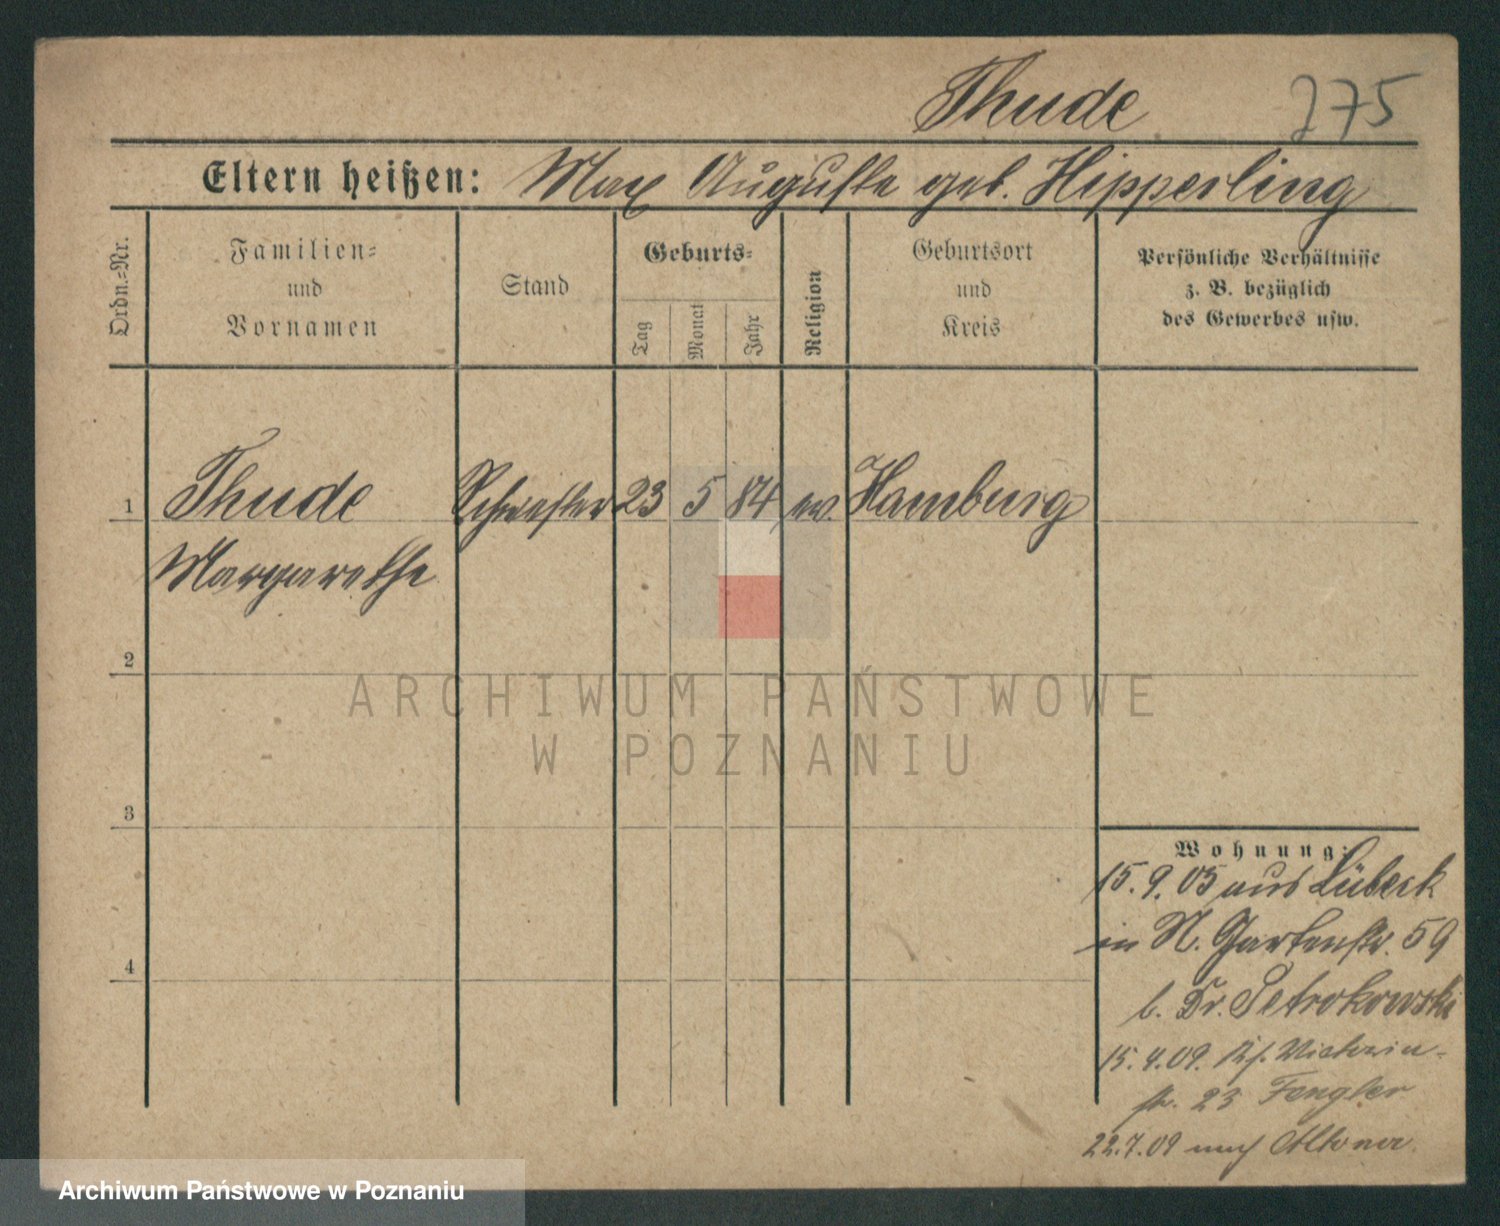 Thude 275
Eltern heißen: Max Auguste geb. Hipperling
Ordn.-Nr.
Familien-
und
Vornamen
Stand
Geburts-
Tag
Monat
Jahr
Religion
Geburtsort
und
Kreis
Persönliche Verhältnisse
z. B. bezüglich
des Gewerbes usw.
1 Thude Schwester 23 5 84 ev. Hamburg
Margarethe
2
ARCHIWUM PAŃSTWOWE
W POZNANIU
3
Wohnung:
15.9.05 aus Lübeck
in N. Gartenstr. 59
4
b. Dr. Petrokowski
15.4.09. Victoria-
str. 23 Fengler
22.7.09 nach Altona
Archiwum Państwowe w Poznaniu